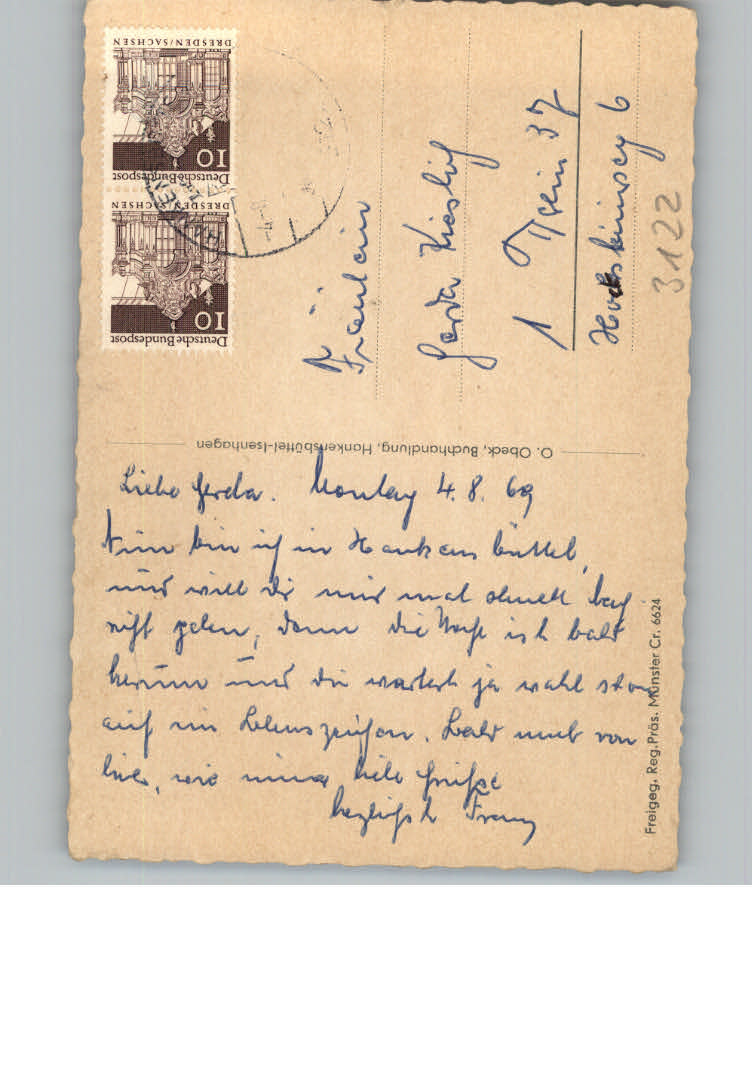 Deutsche Bundespost
10
DRESDEN/SACHSEN
Deutsche Bundespost
10
DRESDEN/SACHSEN
Fräulein
Gerda
1 Berlin 37
6
3122
O. Obeck, Buchhandlung, Hankensbüttel-Isenhagen
Liebe Gerda. Montag 4.8.69
Nun bin ich in Hankensbüttel,
und will Dir nur mal
denn die Woche ist bald
herum und Du wartest ja wohl schon
auf ein Lebenszeichen. Bald mehr von
hier, wie immer liebe Grüße
herzlichst Franz
Freigeg. Reg.Präs. Münster Cr. 6624